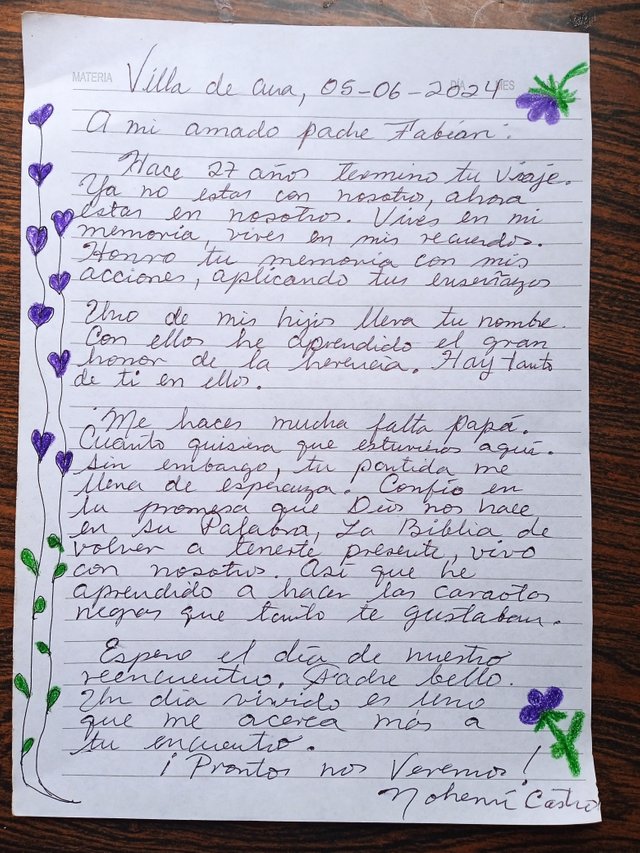 MATERIA DÍA MES
Villa de Cura, 05-06-2024
A mi amado padre Fabián:
Hace 27 años termino tu viaje.
Ya no estas con nosotro, ahora
estas en nosotros. Vives en mi
memoria, vives en mis recuerdos.
Honro tu memoria con mis
acciones, aplicando tus enseñazas
Uno de mis hijos lleva tu nombre.
Con ellos he aprendido el gran
honor de la herencia. Hay tanto
de ti en ellos.
Me haces mucha falta papá.
Cuánto quisiera que estuvieras aquí.
Sin embargo, tu partida me
llena de esperanza. Confío en
la promesa que Dios nos hace
en su Palabra, La Biblia de
volver a tenerte presente, vivo
con nosotros. Así que he
aprendido a hacer las caraotas
negras que tanto te gustaban.
Espero el día de nuestro
reencuentro. Padre bello.
Un día vivido es uno
que me acerca más a
tu encuentro.
¡Prontos nos Veremos!
Nohemí Castro